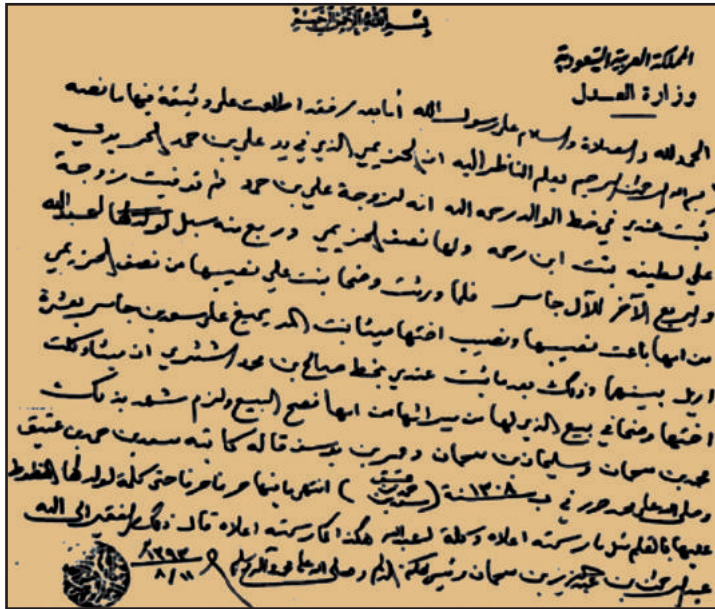 بسم الله الرحمن الرحيم
المملكة العربية السعودية
وزارة العدل
الحمد لله والصلاة والسلام على رسول الله أما بعد فقد اطلعت على وثيقة فيها ما نصه
بسم الله الرحمن الرحيم يعلم الناظر اليه ان الحزيمي الذي في يد علي بن حمد
ثبت عندي في خط الوالد رحمه الله انه لزوجة علي بن حمد زوجة
علي لطيفه بنت ابن رحمه ولها نصف الحزيمي وربع منه سبل لعبدالله
والربع الآخر للآل جاسر فلما ورثت وضحا بنت علي نصيبها من نصف الحزيمي
من امها باعت نصيبها ونصيب اختها ميثا بنت على سعد بن جاسر بعشرة
اريل بينهما وذلك بعد ما ثبت عندي بخط صالح بن محمد الشثري ان ميثا وكلت
اختها وضحا في بيع الذي لها من ميراثها من امها فصح البيع ولزم شهد بذلك
محمد بن سحمان وسليمان بن سحمان قاله كاتبه سعد بن حمد بن عتيق
وصلى الله على محمد حرر في سنة ١٣٠٨ ( ) انتهى حرفا حرفا حتى كلمة
عليها بالقلم مثل ما رسمته اعلاه وكلمة لعبدالله هكذا كما رسمته اعلاه قال ذلك الفقير الى الله
عبدالرحمن بن عبدالعزيز بن سحمان رئيس محكمة وصلى الله على محمد وآله وسلم
١٣٩٣
٨/١١